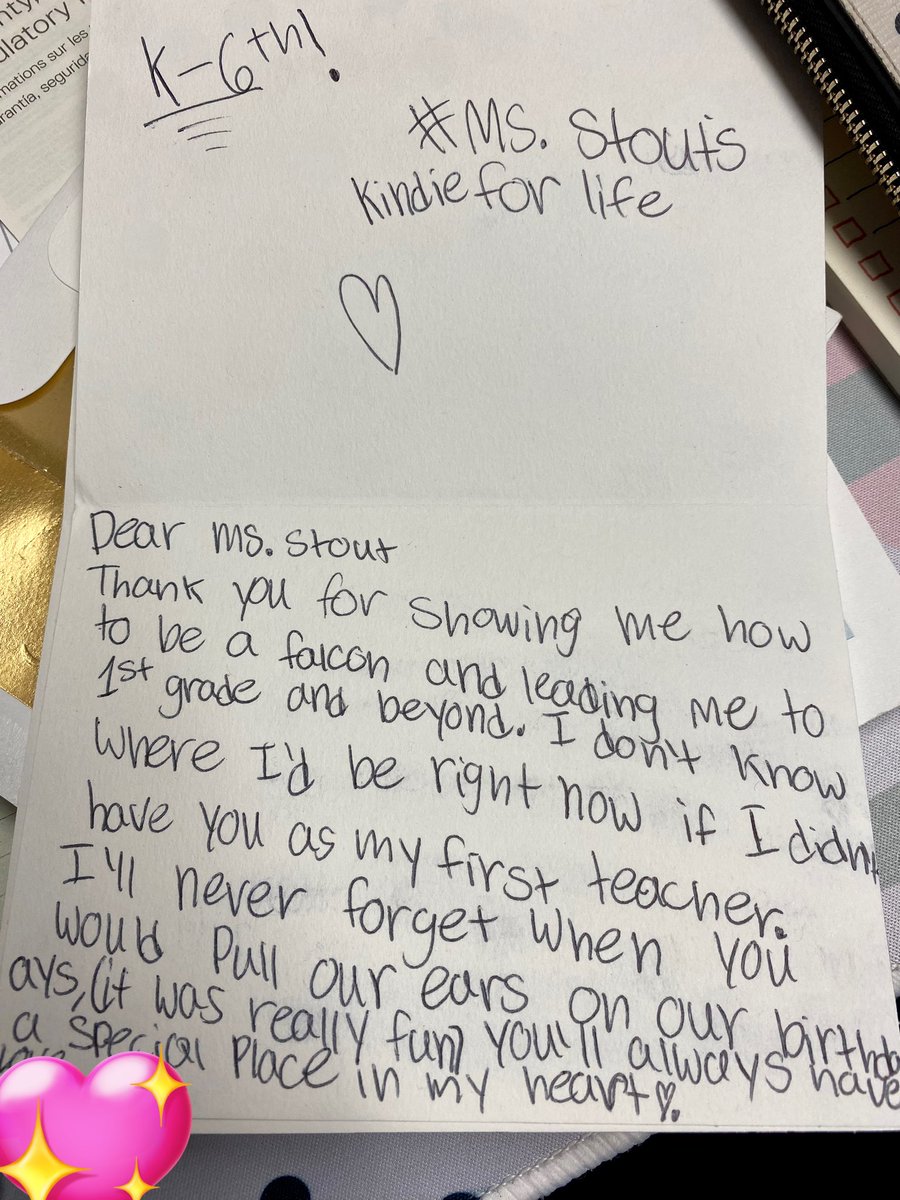 nty,
ulatory
mations sur les
rantía, segurid
K-6th!
#Ms. Stout's
Kindie for life
Dear Ms. Stout
Thank you for showing me how
to be a falcon and leading me to
1st grade and beyond. I don't know
where I'd be right now if I didn't
have you as my first teacher.
I'll never forget when you
would pull our ears on our birthd
ays, (it was really fun) you'll always have
a special place in my heart♡.